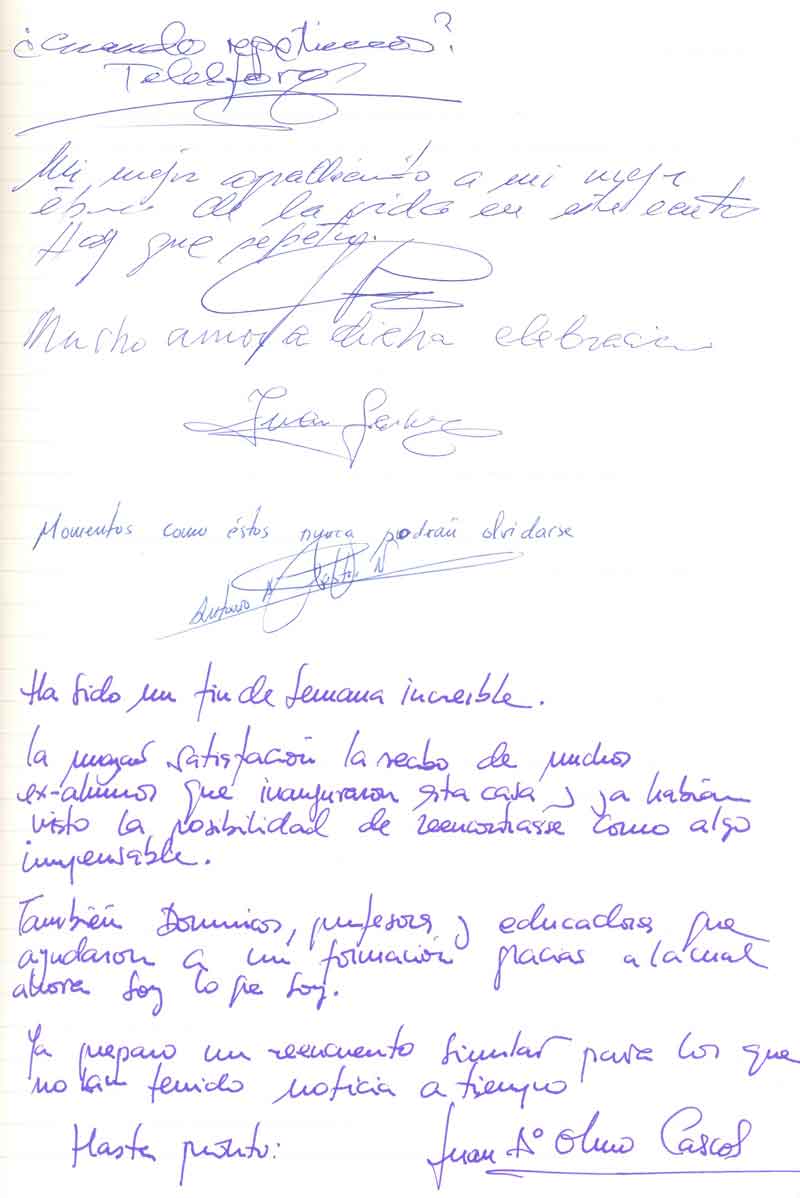 ¿Cuando repetimos?
Telesforo
Mi mejor agradecimiento a mi mejor
época de la vida en este centro
Hay que repetir.
Mucho amor a dicha celebracion
Juan
Momentos como éstos nunca podrán olvidarse
Antonio
Ha sido un fin de semana increible.
la mayor satisfacción la recibo de muchos
ex-alumnos que inauguraron esta casa y ya habían
visto la posibilidad de reencontrasse como algo
impensable.
También Dominicos, profesores y educadores que
ayudaron a mi formación gracias a la cual
ahora soy lo que soy.
Ya preparo un reencuentro similar para los que
no han tenido noticia a tiempo
Hasta pronto:
Juan Aº Olmo Cascos